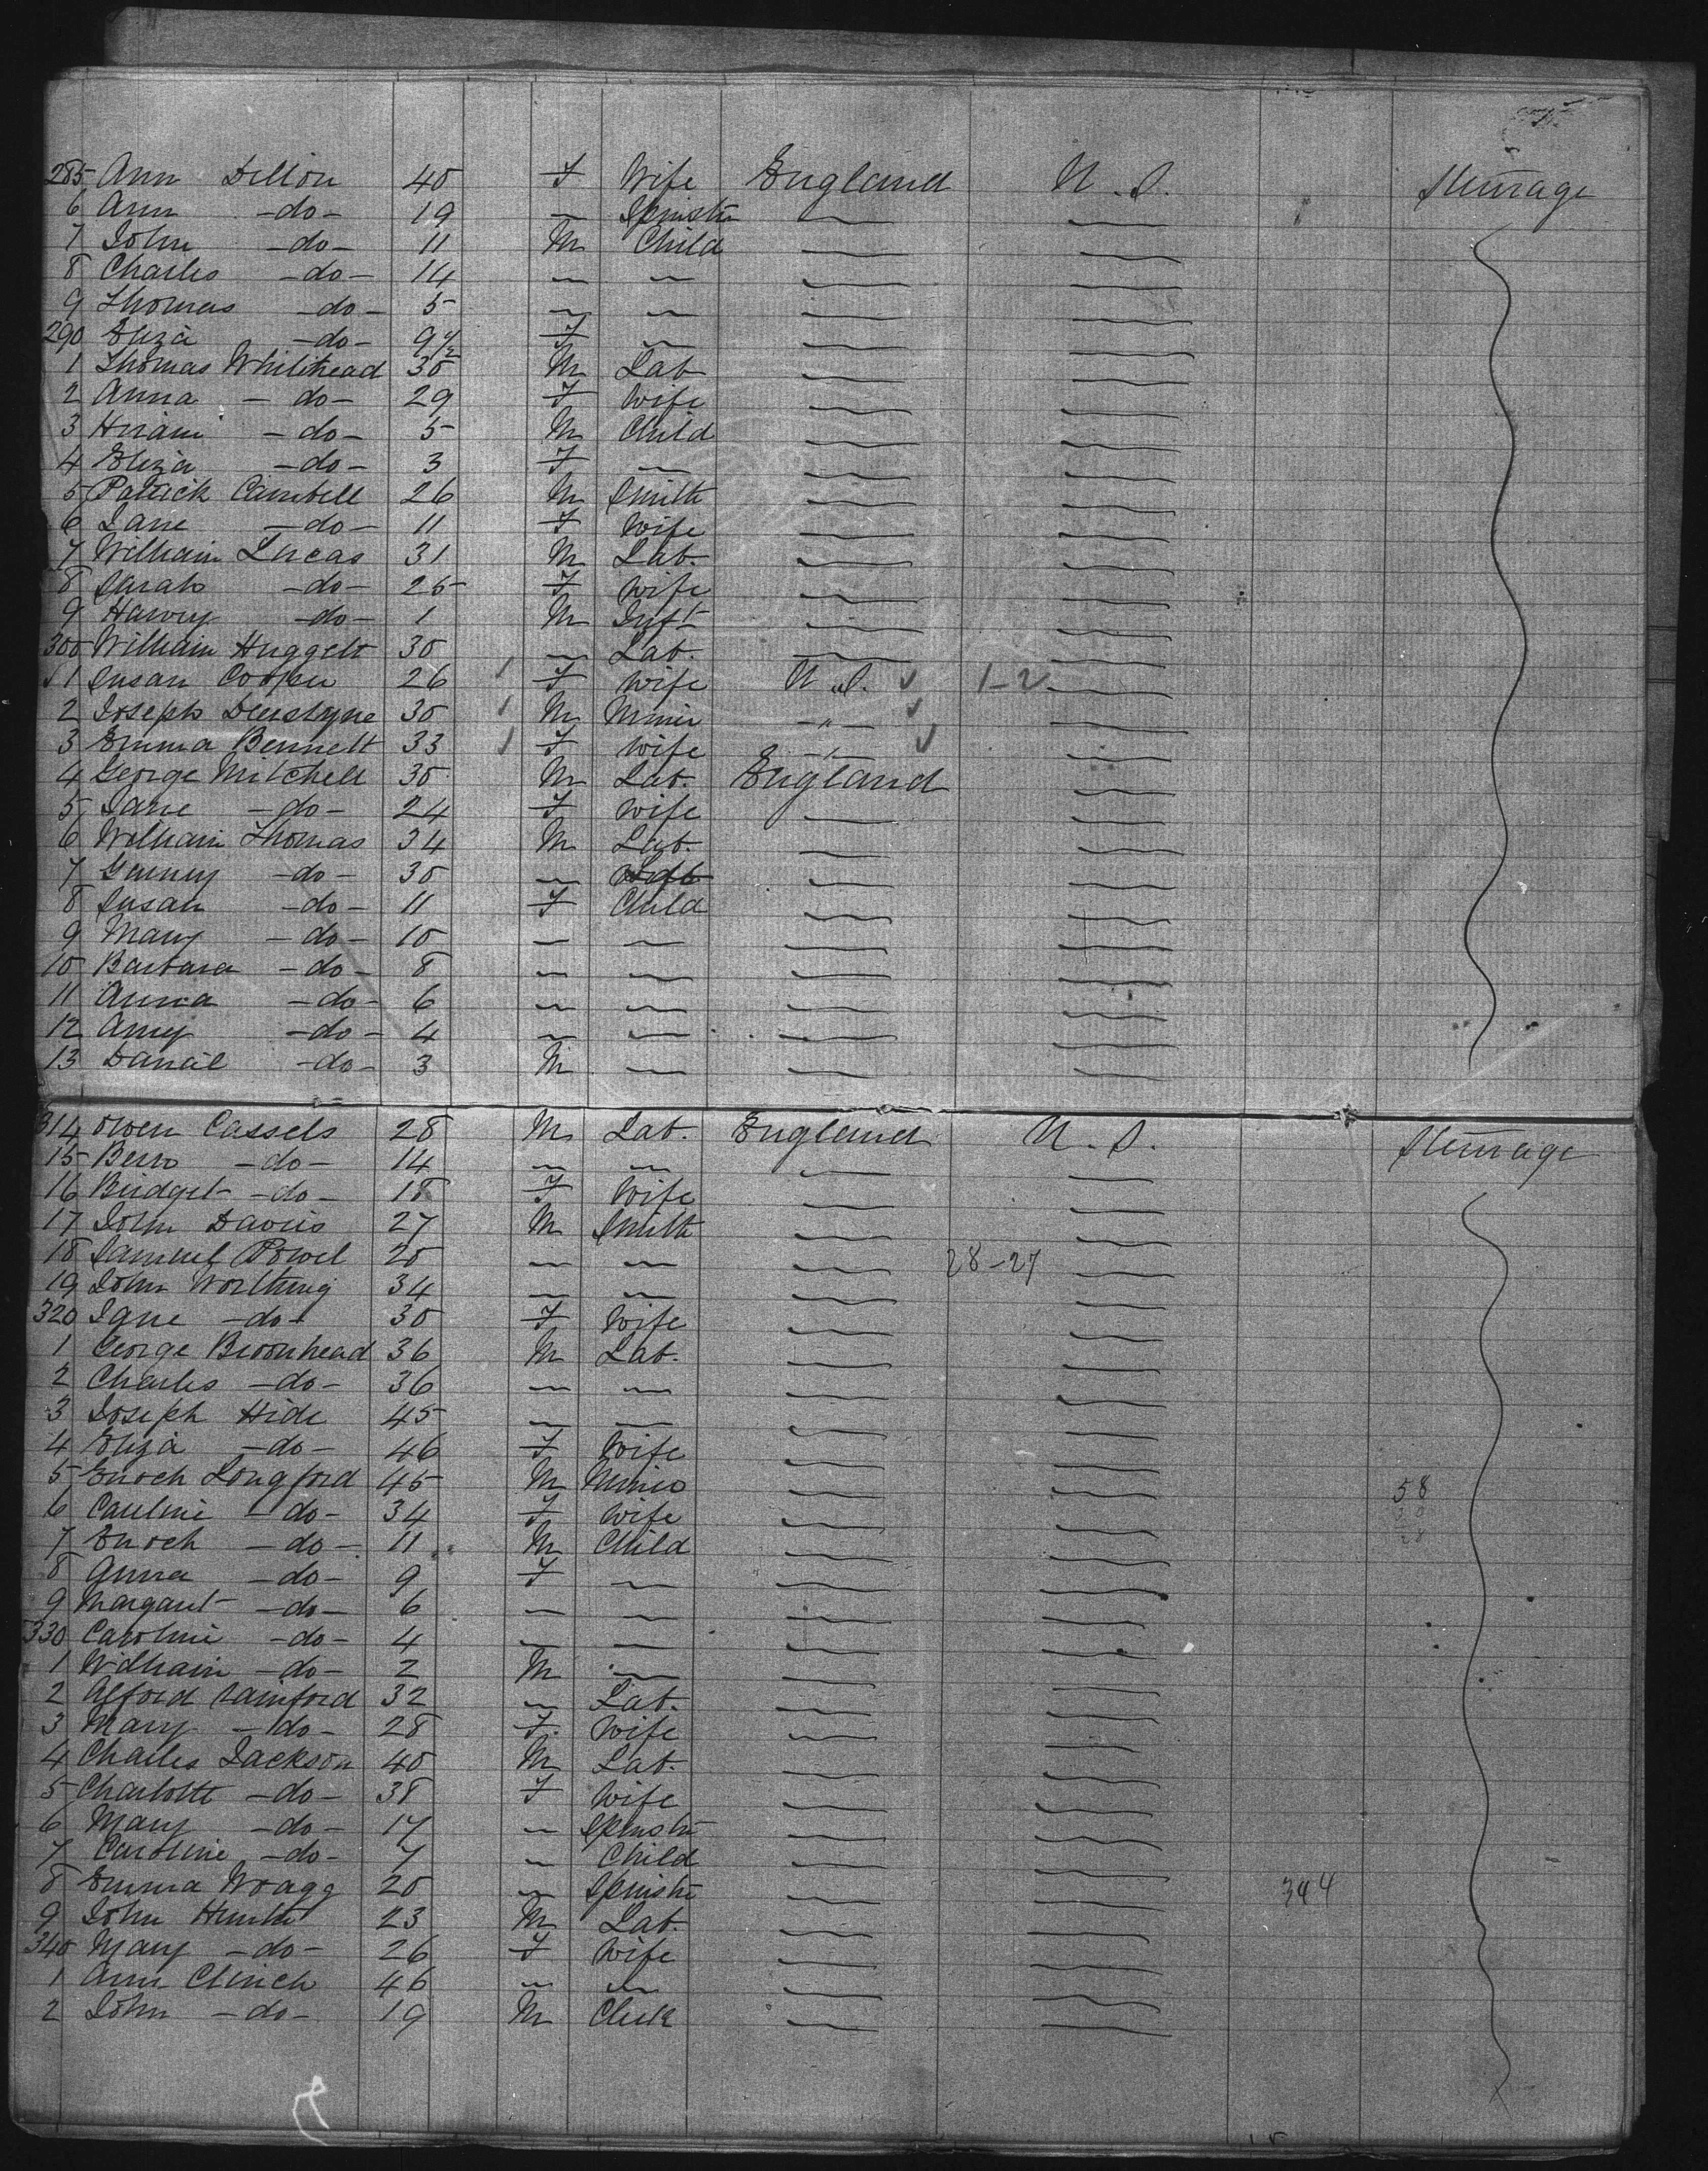 285 Ann Dillon 40 F Wife England U.S. Steerage
6 Ann -do- 19 — Spinstr — —
7 John -do- 11 M Child — —
8 Charles -do- 14 — — — —
9 Thomas -do- 5 — — — —
290 Eliza -do- 9½ F — — —
1 Thomas Whitehead 30 M Lab — —
2 Anna -do- 29 F Wife — —
3 Hiram -do- 5 M Child — —
4 Eliza -do- 3 F — — —
5 Patrick Cambell 26 M Smith — —
6 Jane -do- 11 F Wife — —
7 William Lucas 31 M Lab. — —
8 Sarah -do- 25 F Wife — —
9 Harvey -do- 1 M Inft — —
300 William Huggett 30 — Lab. — —
1 Susan Cooper 26 F Wife U.S. 1-2 —
2 Joseph 30 M Miner -"- —
3 Emma Bennett 33 F Wife -"- —
4 George Mitchell 30 M Lab. England —
5 Jane -do- 24 F Wife — —
6 William Thomas 34 M Lab. — —
7 -do- 30 — — —
8 Susan -do- 11 F Child — —
9 Mary -do- 10 — — — —
10 Barbara -do- 8 — — — —
11 Anna -do- 6 — — — —
12 Amy -do- 4 — — — —
13 Danail -do- 3 M — — —
314 Owen Cassels 28 M Lab. England U.S. Steerage
15 -do- 14 — — — —
16 Bridget -do- 18 F Wife — —
17 John Davies 27 M Smith — —
18 Samuel Powel 20 — — — 28-27 —
19 John Worthing 34 — — — —
320 Jane -do- 30 F Wife — —
1 George Broonhead 36 M Lab. — —
2 Charles -do- 36 — — — —
3 Joseph Hide 45 — — — —
4 Eliza -do- 46 F Wife — —
5 Enoch Longford 45 M — — 58
6 Cauline -do- 34 F Wife — —
7 Enoch -do- 11 M Child — — 28
8 Anna -do- 9 F — — —
9 Margaret -do- 6 — — — —
330 Caroline -do- 4 — — — —
1 William -do- 2 M — — —
2 Alford Rainford 32 — Lab. — —
3 Mary -do- 28 F. Wife — —
4 Charles Jackson 40 M Lab. — —
5 Charlotte -do- 38 F Wife — —
6 Mary -do- 17 — Spinstr — —
7 Caroline -do- 7 — Child — —
8 Emma Wragg 20 — Spinstr — — 344
9 John Hunter 23 M Lab. — —
340 Mary -do- 26 F Wife — —
1 Ann Clinch 46 — — — —
2 John -do- 19 M Clerk — —